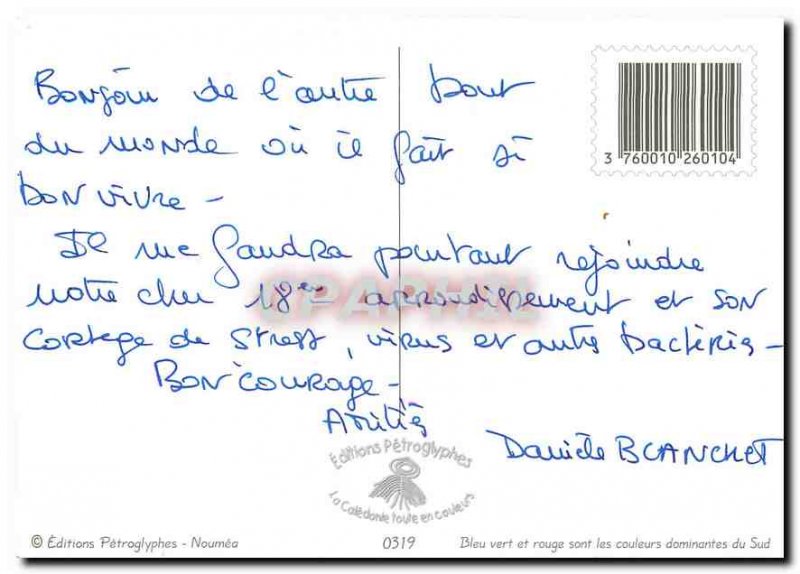 Bonjour de l'autre bout
du monde où il fait si
bon vivre -
Il me faudra pourtant rejoindre
notre cher 18ème arrondissement et son
cortège de stress, virus et autres bactéries -
Bon courage -
Amitiés
Danièle BLANCHET
3 760010 260104
CPAPHIL
Éditions Pétroglyphes
La Calédonie toute en couleurs
© Éditions Pétroglyphes - Nouméa
0319
Bleu vert et rouge sont les couleurs dominantes du Sud